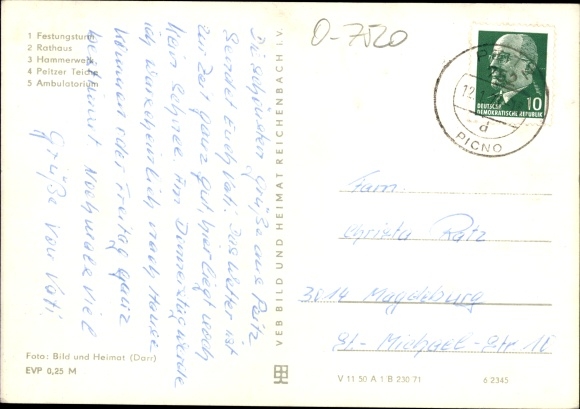 1 Festungsturm
2 Rathaus
3 Hammerwerk
4 Peltzer Teiche
5 Ambulatorium
O-7520
DEUTSCHE
DEMOKRATISCHE REPUBLIK
10
12.
d
Die schönsten Grüße aus Peitz
Sendet Euch Vati. Das Wetter ist
zur Zeit ganz gut, hier liegt noch
kein Schnee. Am Donnerstag werde
ich wahrscheinlich nach Hause
kommen oder Freitag ganz
bestimmt. Nochmals viel
Grüße von Vati.
VEB BILD UND HEIMAT REICHENBACH I. V.
Fam.
Christa Ratz
3014 Magdeburg
St.-Michael-Str 11
Foto: Bild und Heimat (Darr)
EVP 0,25 M
V 11 50 A 1 B 230/71
6 2345